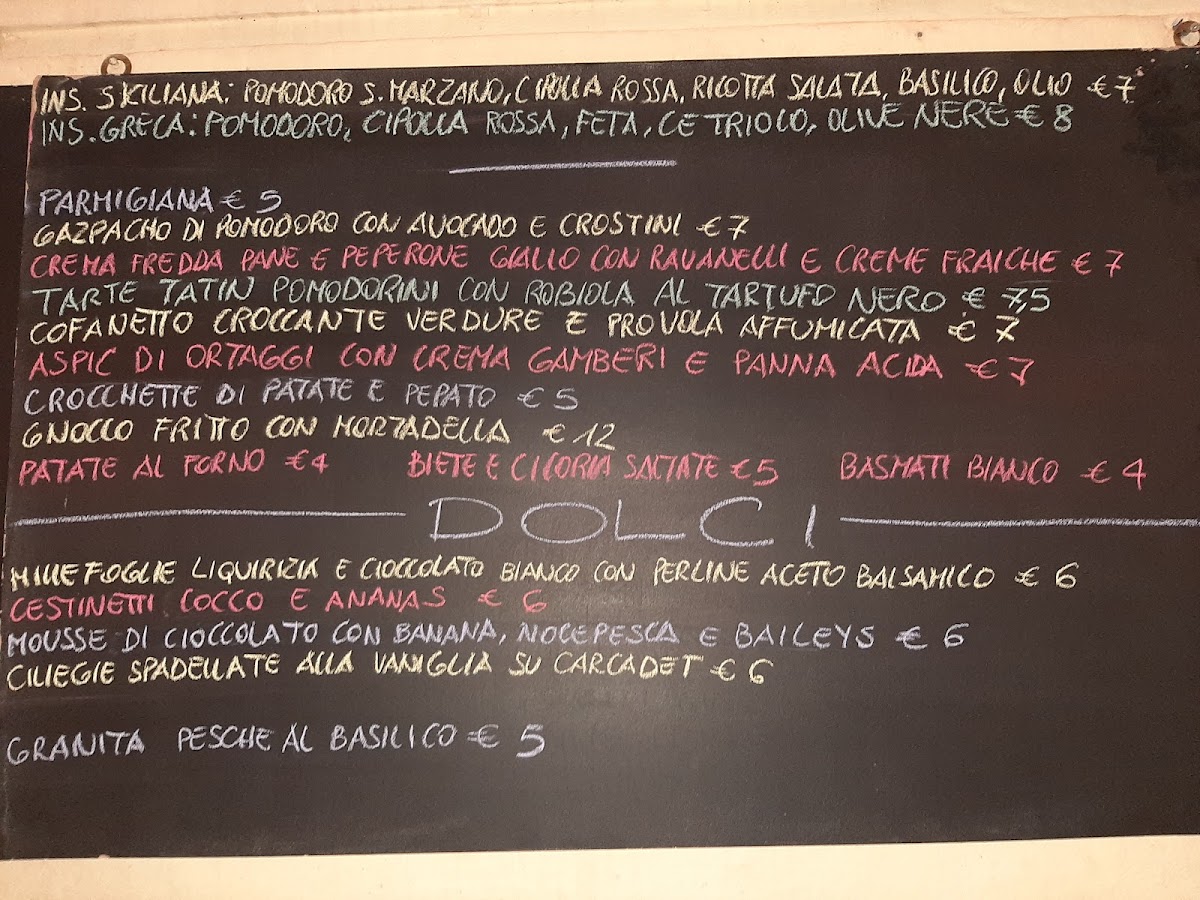 INS. SICILIANA: POMODORO S. MARZANO, CIPOLLA ROSSA, RICOTTA SALATA, BASILICO, OLIO € 7
INS. GRECA: POMODORO, CIPOLLA ROSSA, FETA, CETRIOLO, OLIVE NERE € 8
PARMIGIANA € 5
GAZPACHO DI POMODORO CON AVOCADO E CROSTINI € 7
CREMA FREDDA PANE E PEPERONE GIALLO CON RAVANELLI E CREME FRAICHE € 7
TARTE TATIN POMODORINI CON ROBIOLA AL TARTUFO NERO € 7,5
COFANETTO CROCCANTE VERDURE E PROVOLA AFFUMICATA € 7
ASPIC DI ORTAGGI CON CREMA GAMBERI E PANNA ACIDA € 7
CROCCHETTE DI PATATE E PEPATO € 5
GNOCCO FRITTO CON MORTADELLA € 12
PATATE AL FORNO € 4 BIETE E CICORIA SALTATE € 5 BASMATI BIANCO € 4
DOLCI
MILLEFOGLIE LIQUIRIZIA E CIOCCOLATO BIANCO CON PERLINE ACETO BALSAMICO € 6
CESTINETTI COCCO E ANANAS € 6
MOUSSE DI CIOCCOLATO CON BANANA, NOCEPESCA E BAILEYS € 6
CILIEGIE SPADELLATE ALLA VANIGLIA SU CARCADET € 6
GRANITA PESCHE AL BASILICO € 5